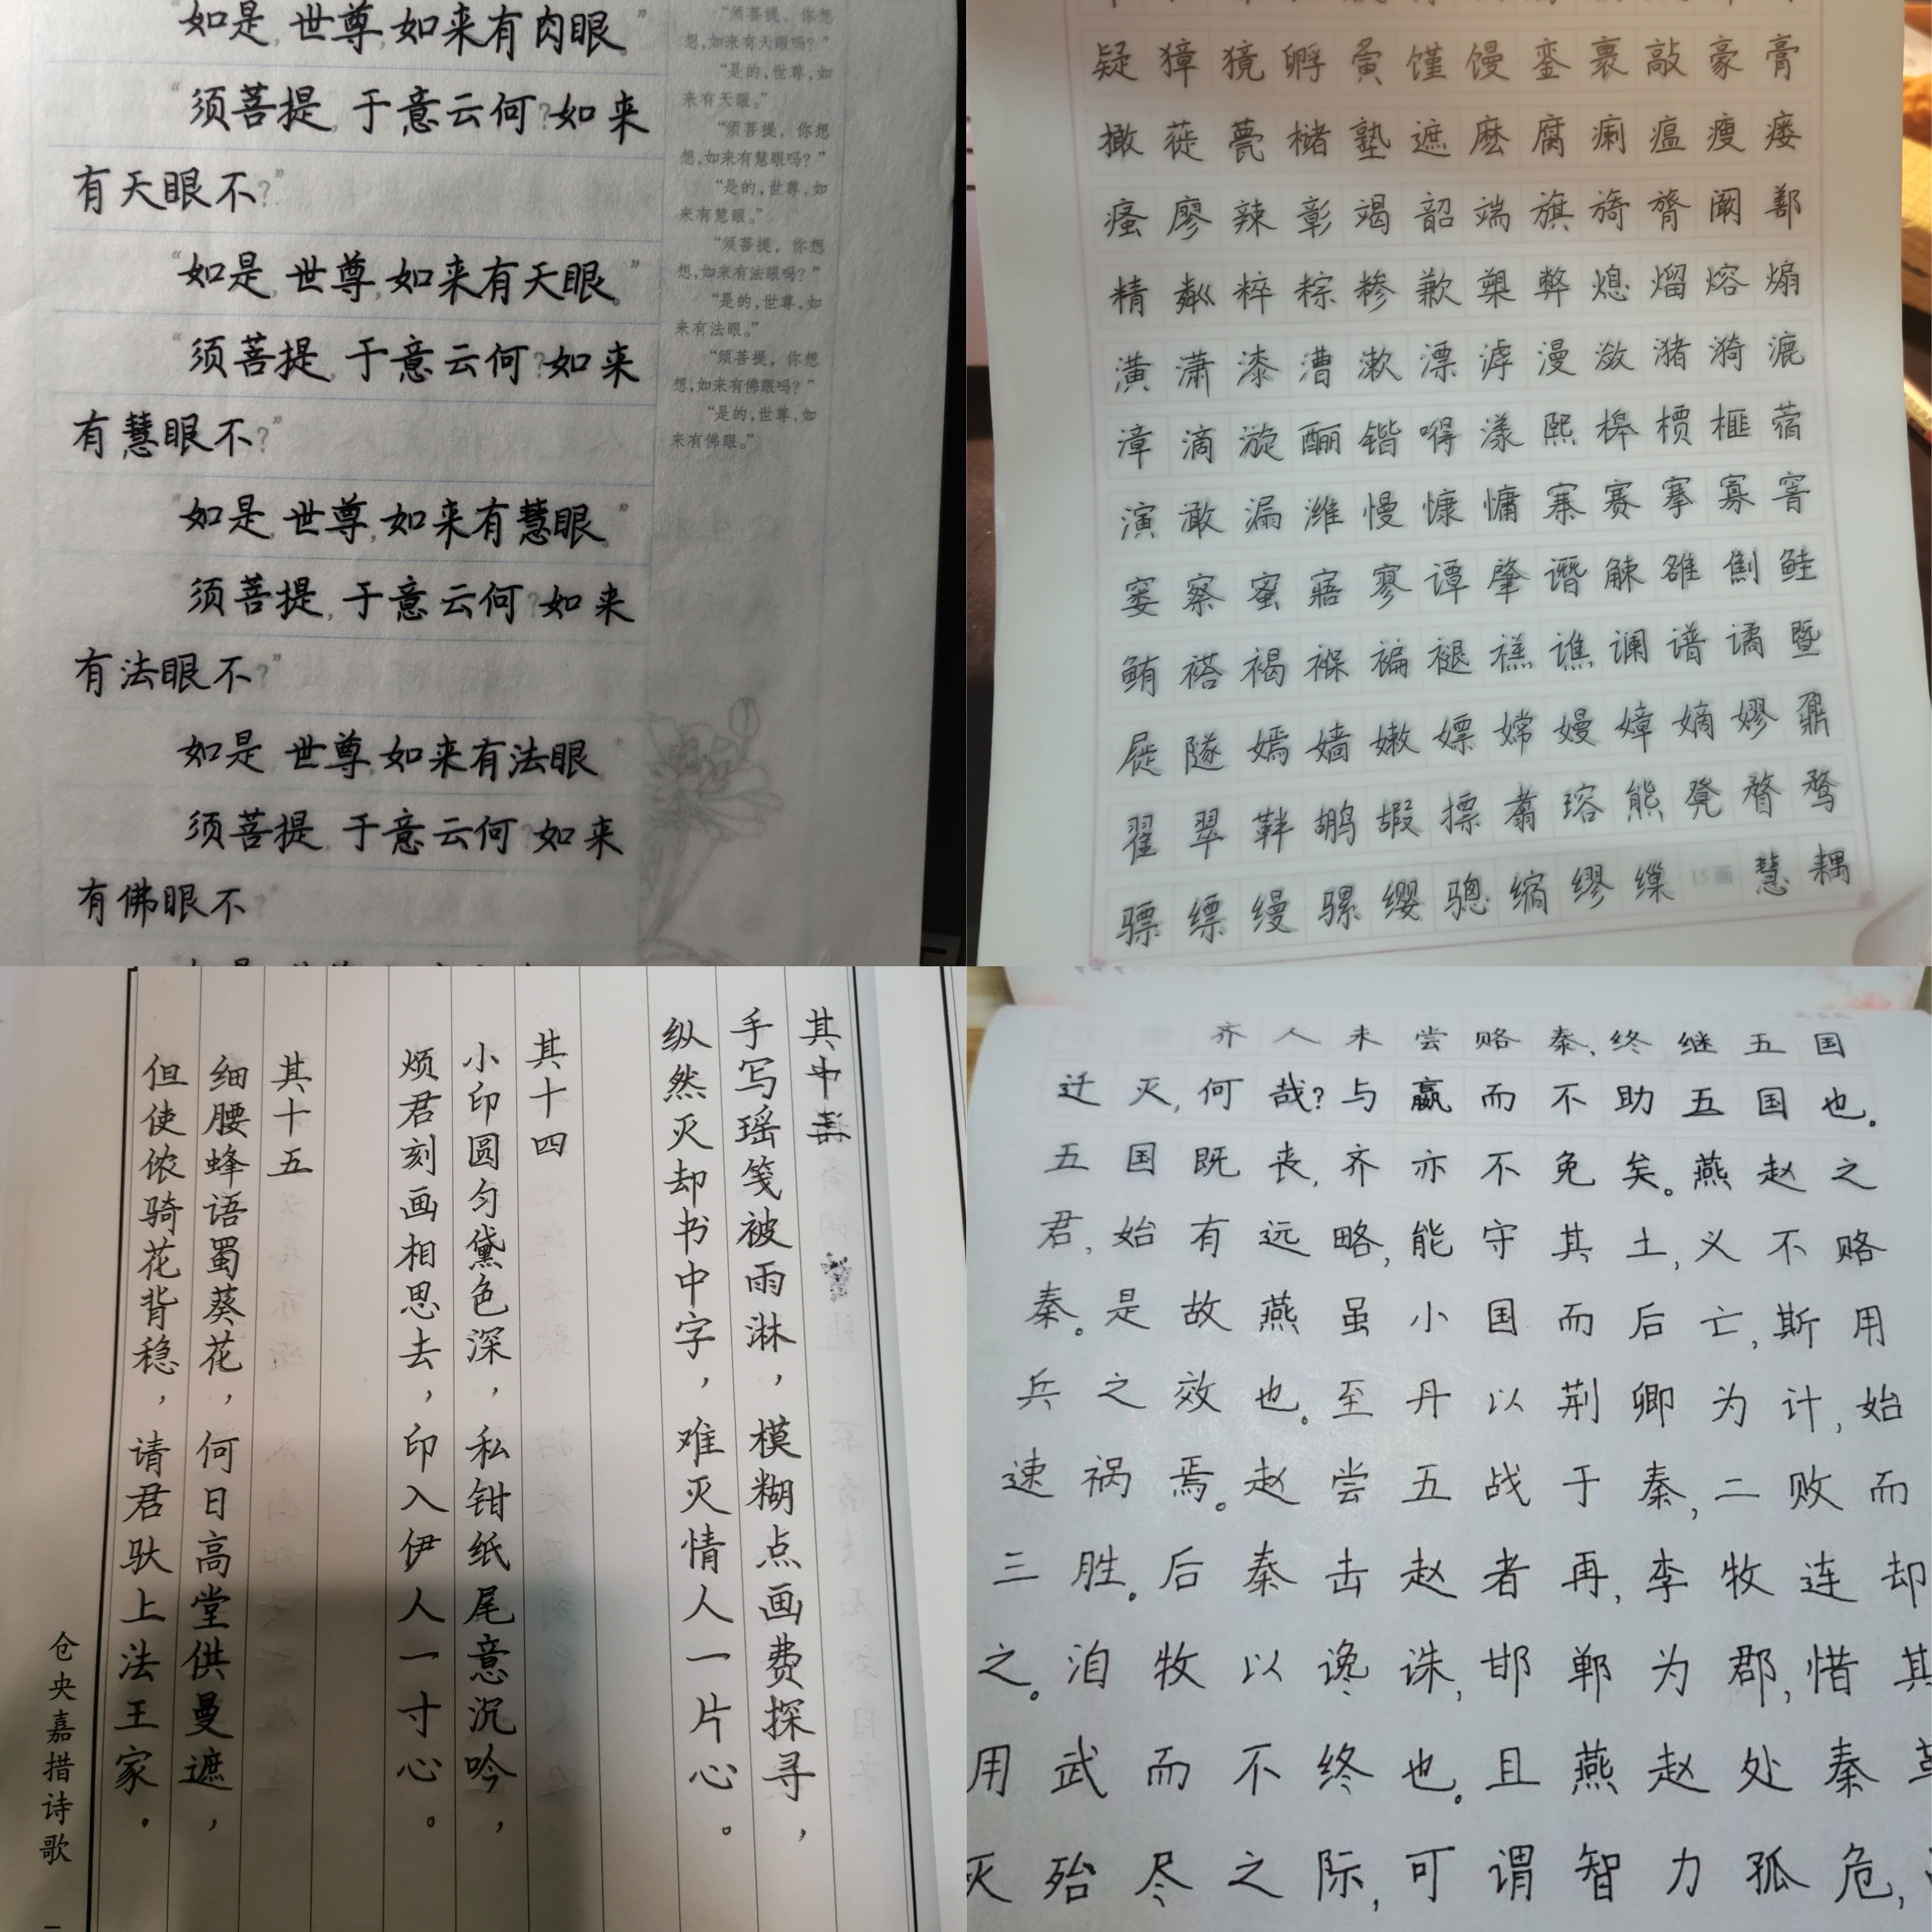 “如是,世尊,如来有肉眼。”
“须菩提,于意云何?如来
有天眼不?”
“如是,世尊,如来有天眼。”
“须菩提,于意云何?如来
有慧眼不?”
“如是,世尊,如来有慧眼。”
“须菩提,于意云何?如来
有法眼不?”
“如是,世尊,如来有法眼。”
“须菩提,于意云何?如来
有佛眼不?”
“须菩提,你想
想,如来有天眼吗?”
“是的,世尊,如
来有天眼。”
“须菩提,你想
想,如来有慧眼吗?”
“是的,世尊,如
来有慧眼。”
“须菩提,你想
想,如来有法眼吗?”
“是的,世尊,如
来有法眼。”
“须菩提,你想
想,如来有佛眼吗?”
“是的,世尊,如
来有佛眼。”
疑獐獍孵夤馑馒銮裹敲豪膏
撖蓰甍槠塾遮麽腐瘌瘟瘦瘘
瘙廖辣彰竭韶端旗旖膂阚鄯
精粼粹粽糁歉槊弊熄熘熔煽
潢潇漆漕漱漂滹漫潋猪漪漉
漳滴漩酾锴嘚漾熙槔槚榧蓿
演澉漏潍慢慷慵寨赛搴寡窨
窭察蜜寤寥谭肇谮觫雒劁鲑
鲔褡褐褓褊褪禚谯谰谱谲暨
屣隧嫣嫱嫩嫖嫦嫚嫜嫡嫪鼐
翟翠鞯鹕嘏摽翥瑢熊凳瞀骛
骠缥缦骡缨骢缩缪缫 15画 慧耦
其
手写瑶笺被雨淋，模糊点画费探寻，
纵然灭却书中字，难灭情人一片心。
其十四
小印圆匀黛色深，私钳纸尾意沉吟，
烦君刻画相思去，印入伊人一寸心。
其十五
细腰蜂语蜀葵花，何日高堂供曼遮，
但使侬骑花背稳，请君驮上法王家。
仓央嘉措诗歌
齐人未尝赂秦,终继五国
迁灭,何哉?与嬴而不助五国也。
五国既丧,齐亦不免矣。燕赵之
君,始有远略,能守其土,义不赂
秦。是故燕虽小国而后亡,斯用
兵之效也。至丹以荆卿为计,始
速祸焉。赵尝五战于秦,二败而
三胜。后秦击赵者再,李牧连却
之。洎牧以谗诛,邯郸为郡,惜其
用武而不终也。且燕赵处秦革
灭殆尽之际,可谓智力孤危,